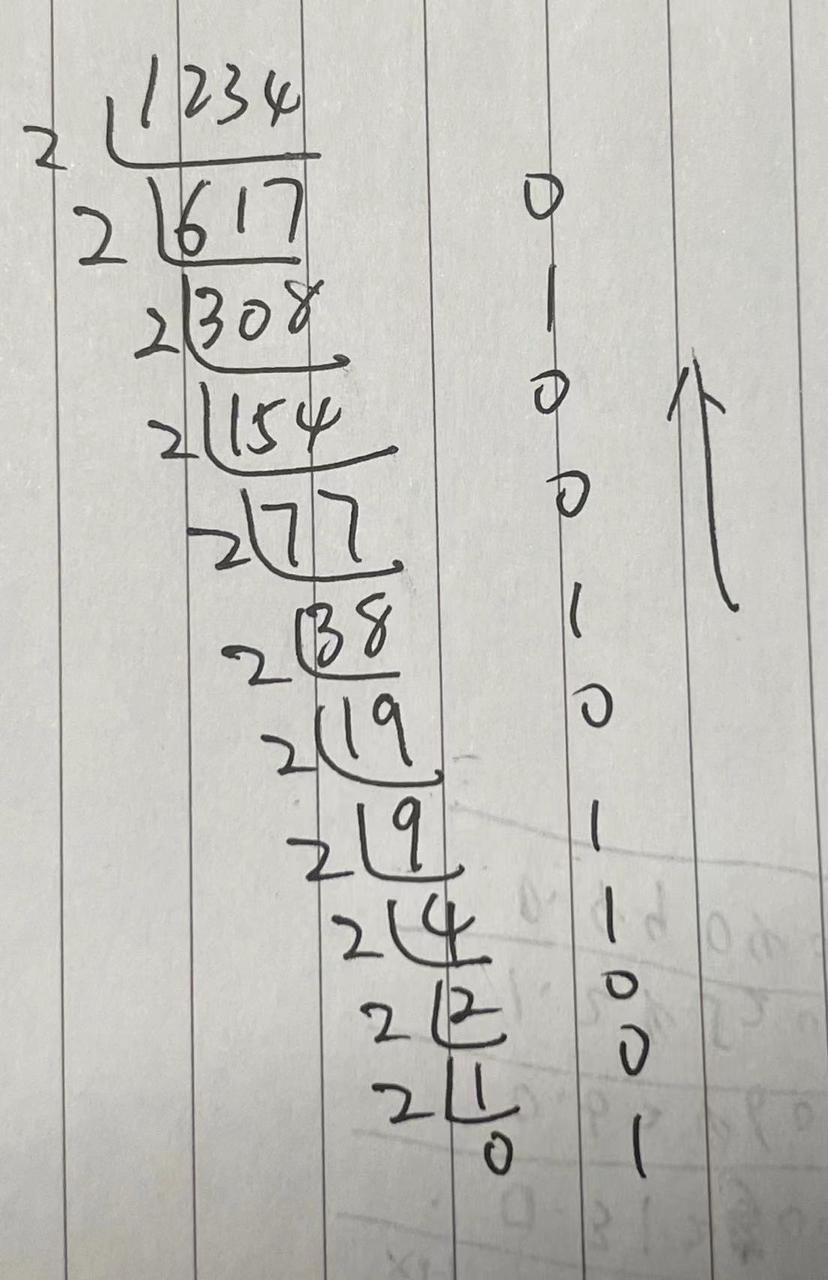 1234
2 617 0
2 308 1
2 154 0
2 77 0
2 38 1
2 19 0
2 9 1
2 4 1
2 2 0
2 1 0
2 0 1